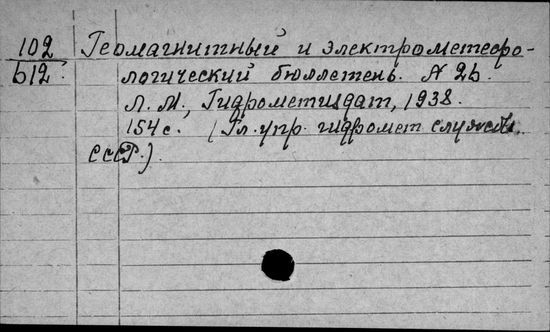 102 Геомагнитный и электрометеоро-
612. логический бюллетень. N 2б.
Л. М., Гидрометиздат, 1938.
154 с. (Гл. упр. гидромет службы
СССР.)